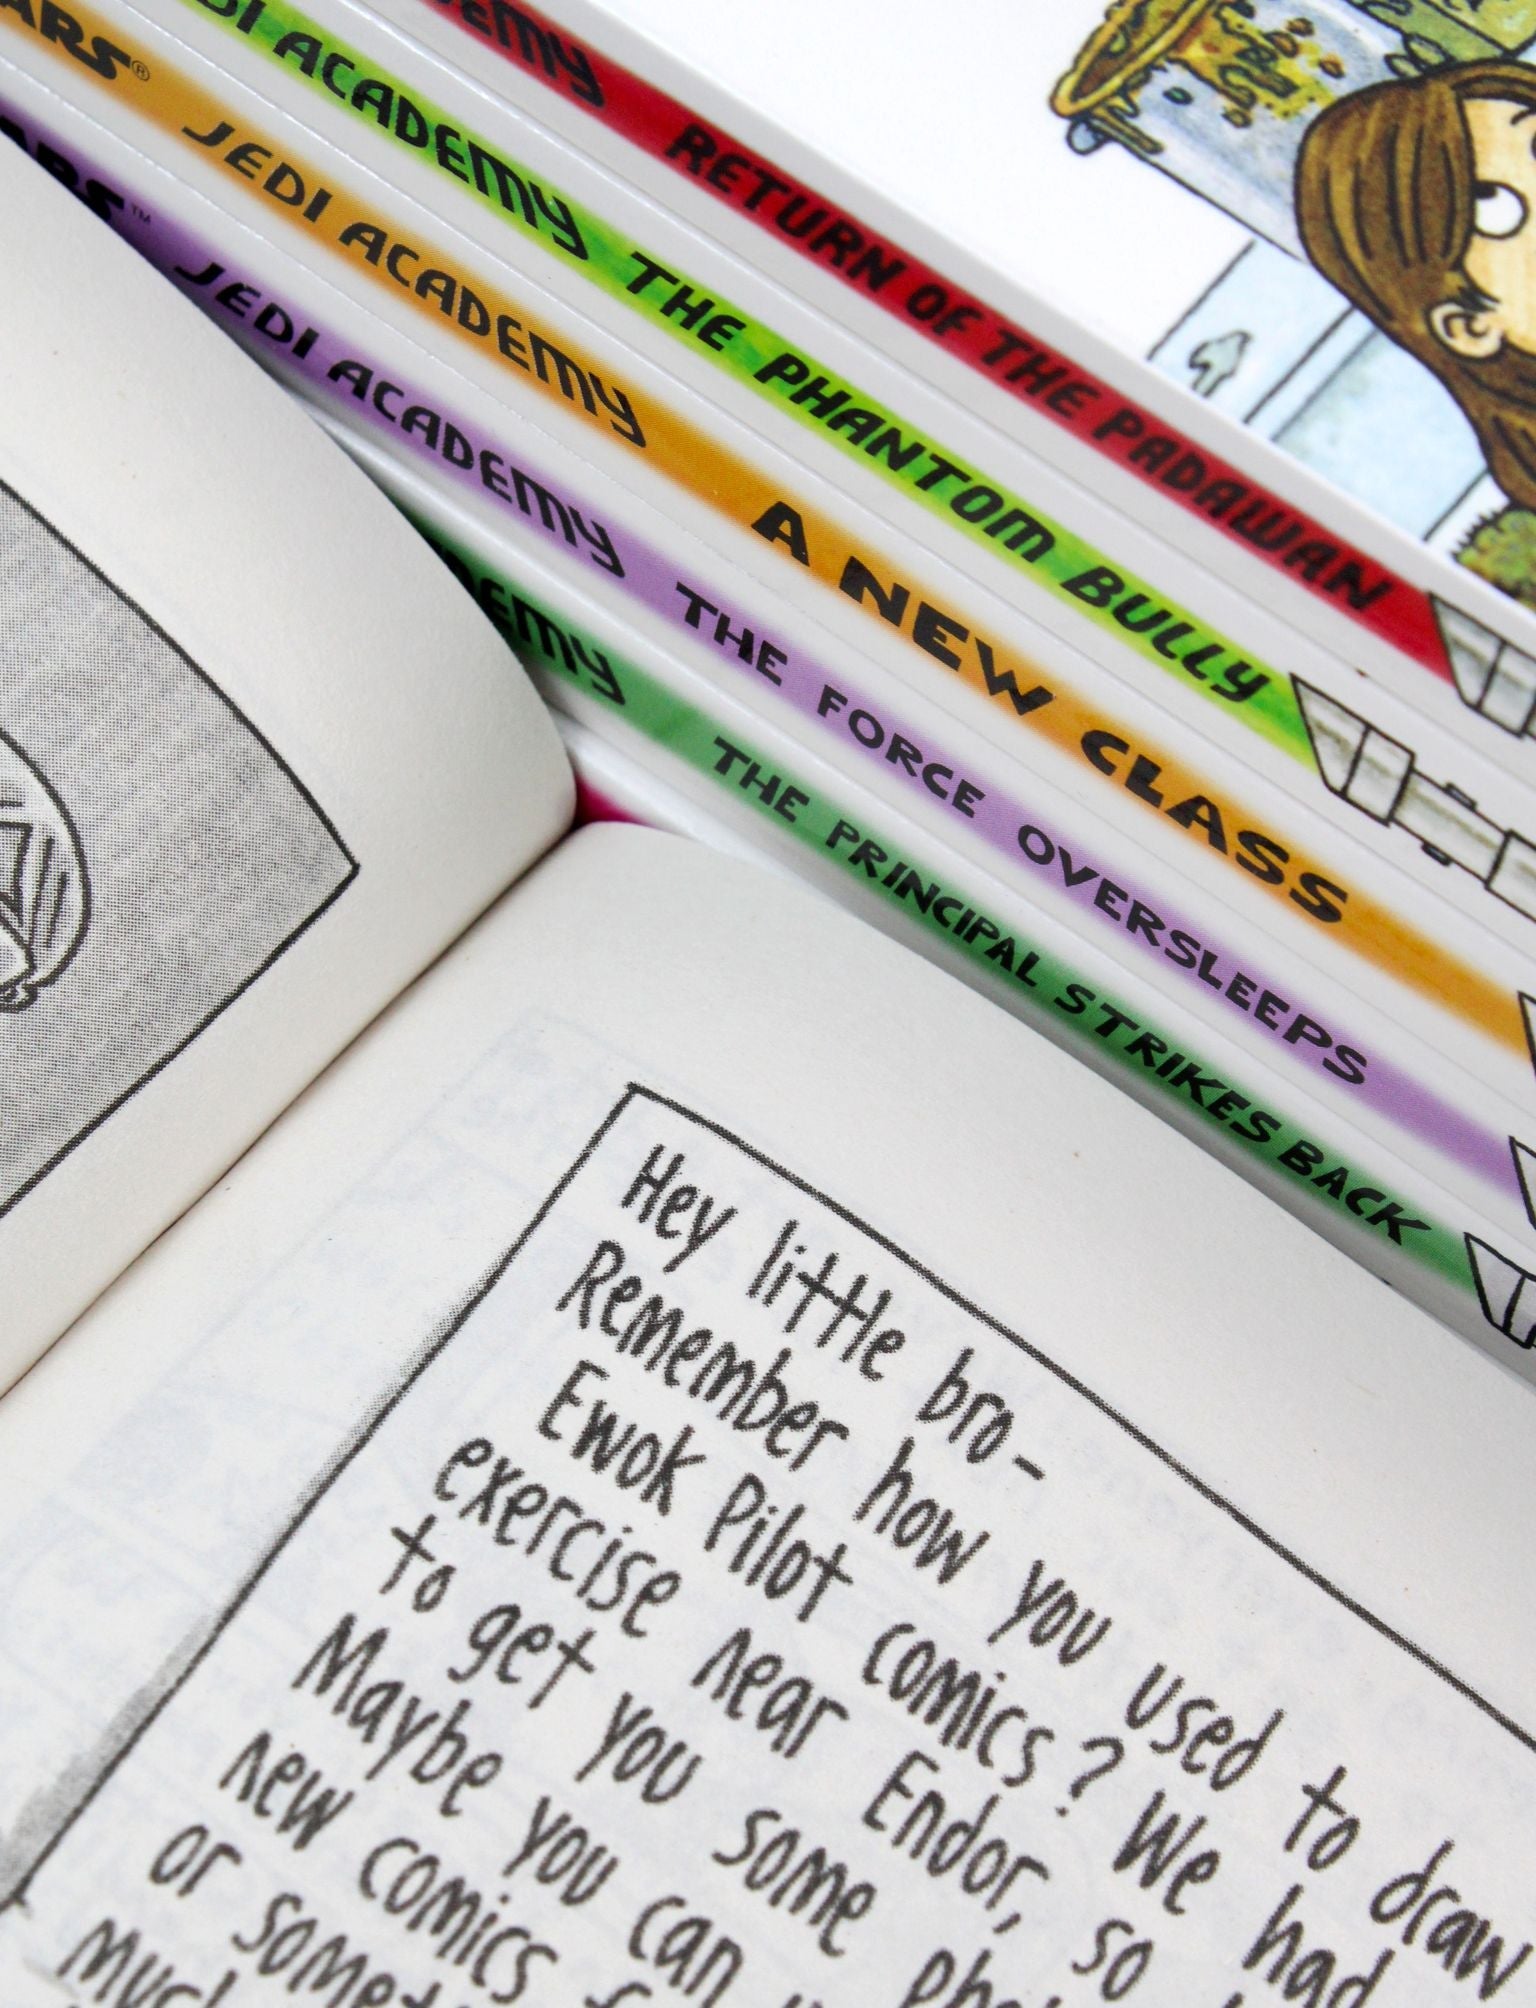 RETURN OF THE PADAWAN
ACADEMY THE PHANTOM BULLY
JEDI ACADEMY A NEW CLASS
JEDI ACADEMY THE FORCE OVERSLEEPS
THE PRINCIPAL STRIKES BACK
Hey little bro-
Remember how you used to draw
Ewok Pilot comics? We had
exercise near Endor, so
to get you some
Maybe you can
new comics
or